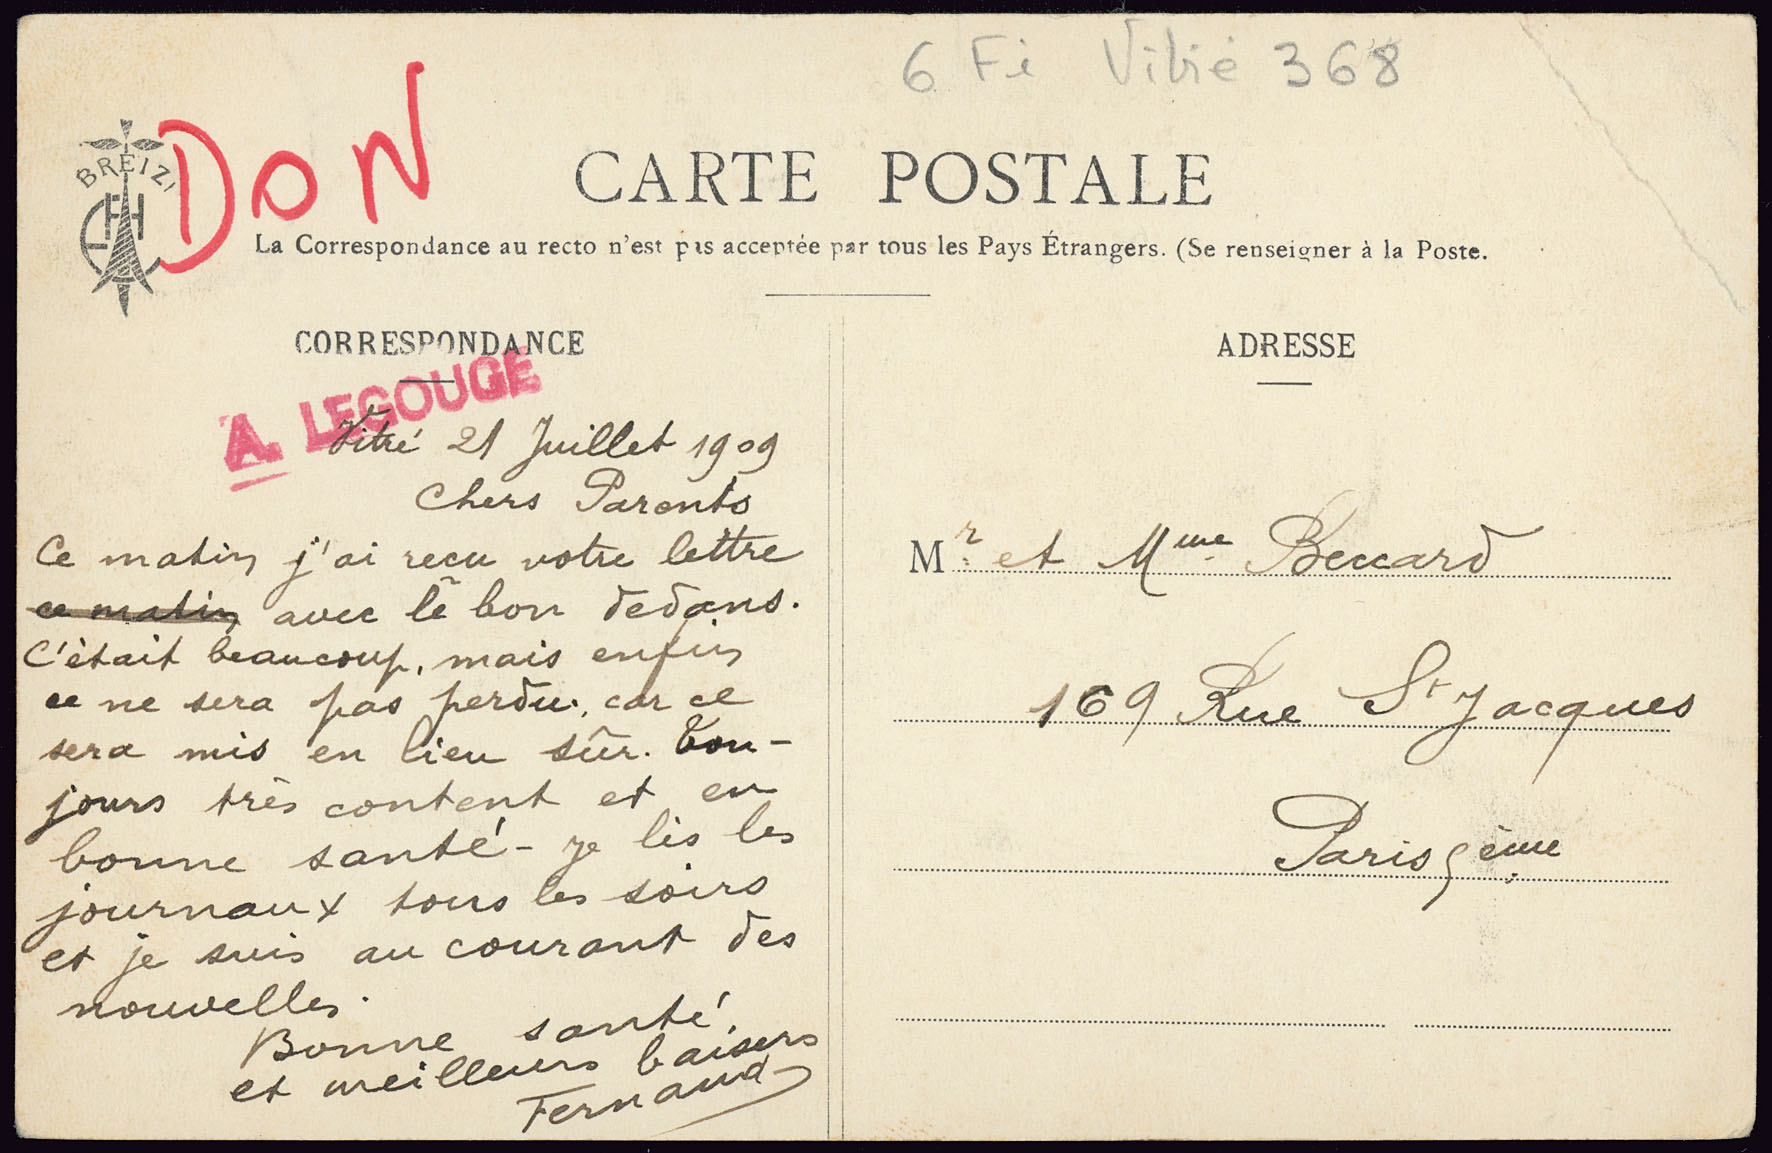 6 Fi Vitré 368
BREIZ
DON
CARTE POSTALE
La Correspondance au recto n'est pas acceptée par tous les Pays Étrangers. (Se renseigner à la Poste.
CORRESPONDANCE
A. LEGOUGE
Vitré 21 Juillet 1909
Chers Parents
Ce matin j'ai recu votre lettre
ce matin avec le bon dedans.
C'était beaucoup, mais enfin
ce ne sera pas perdu, car ce
sera mis en lieu sûr. Tou-
jours très content et en
bonne santé - je lis les
journaux tous les soirs
et je suis au courant des
nouvelles.
Bonne santé
et meilleurs baisers
Fernand
ADRESSE
Mr et Mme Beccard
169 Rue St Jacques
Paris 5ème